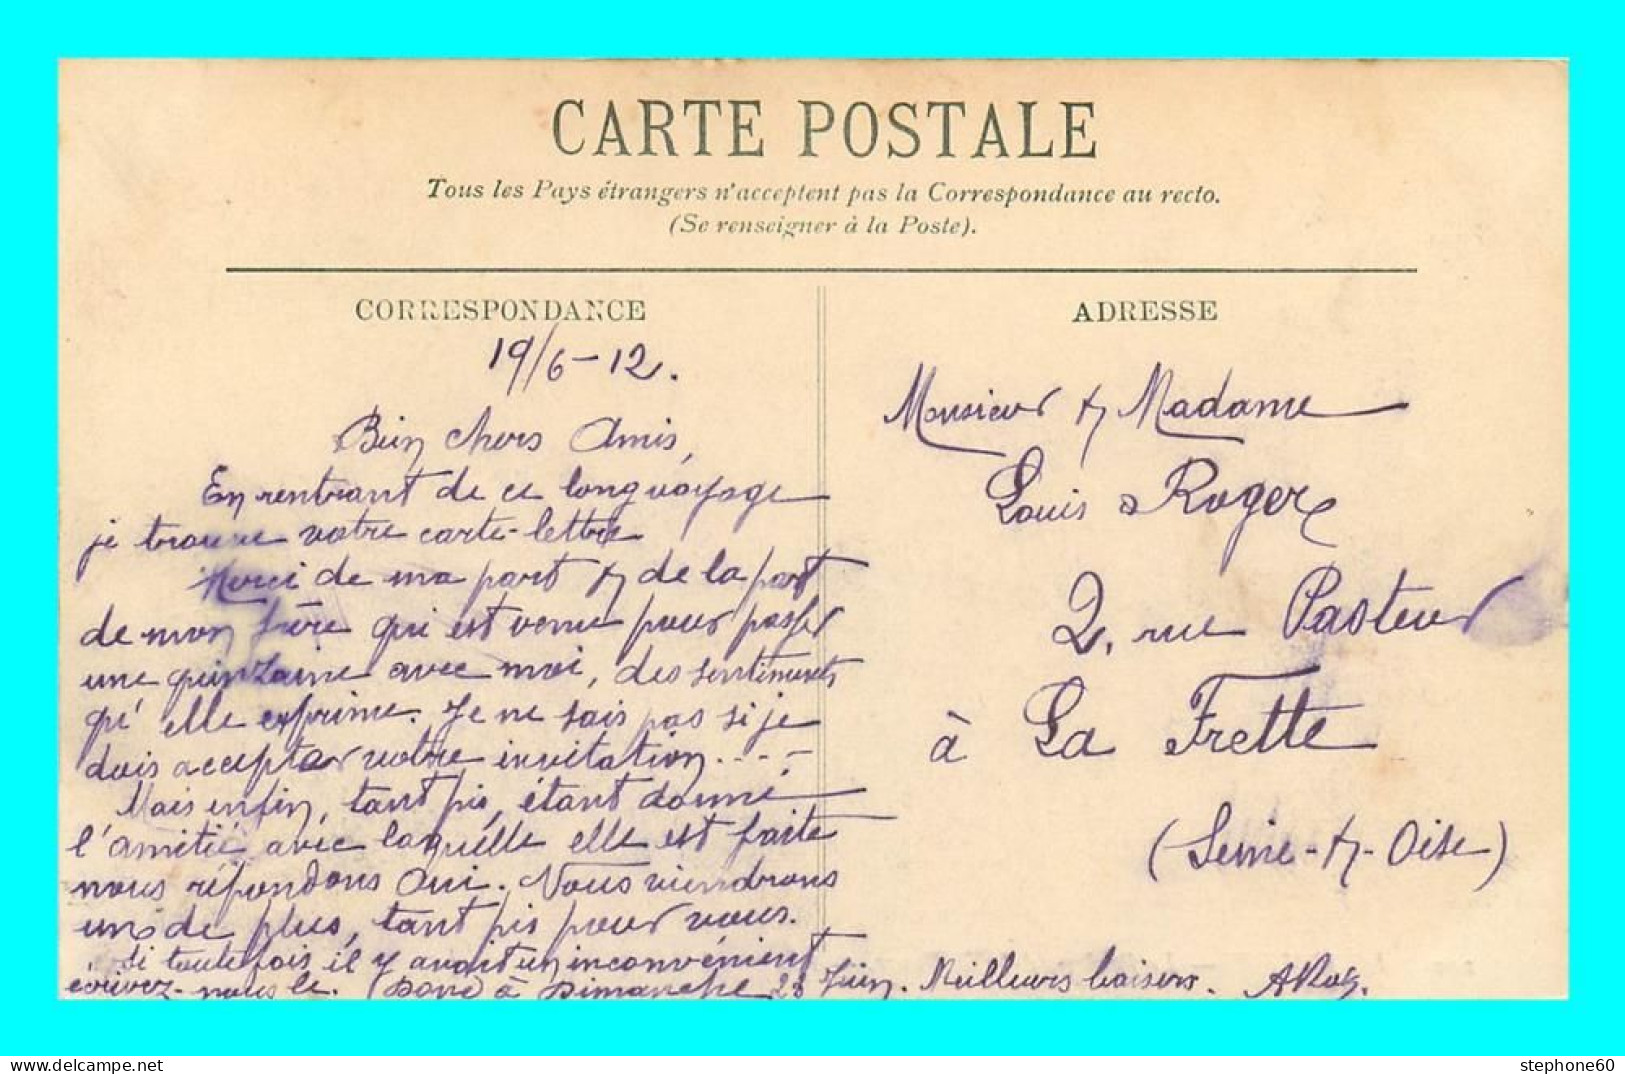 CARTE POSTALE
Tous les Pays étrangers n'acceptent pas la Correspondance au recto.
(Se renseigner à la Poste).
CORRESPONDANCE
19/6-12.
Bien chers Amis,
En rentrant de ce long voyage
je trouve votre carte-lettre
Merci de ma part & de la part
de mon frère qui est venu pour passer
une quinzaine avec moi, des sentiments
qu'elle exprime. Je ne sais pas si je
dois accepter votre invitation....
Mais enfin, tant pis, étant donné
l'amitié avec laquelle elle est faite
nous répondons Oui. Nous viendrons
un de plus, tant pis pour vous.
Si toutefois il y avait un inconvénient
écrivez-nous le. (Donc à Dimanche 23 Juin. Meilleurs baisers.
ADRESSE
Monsieur & Madame
Louis Roger
2, rue Pasteur
à La Frette
(Seine-&-Oise)
stephone60